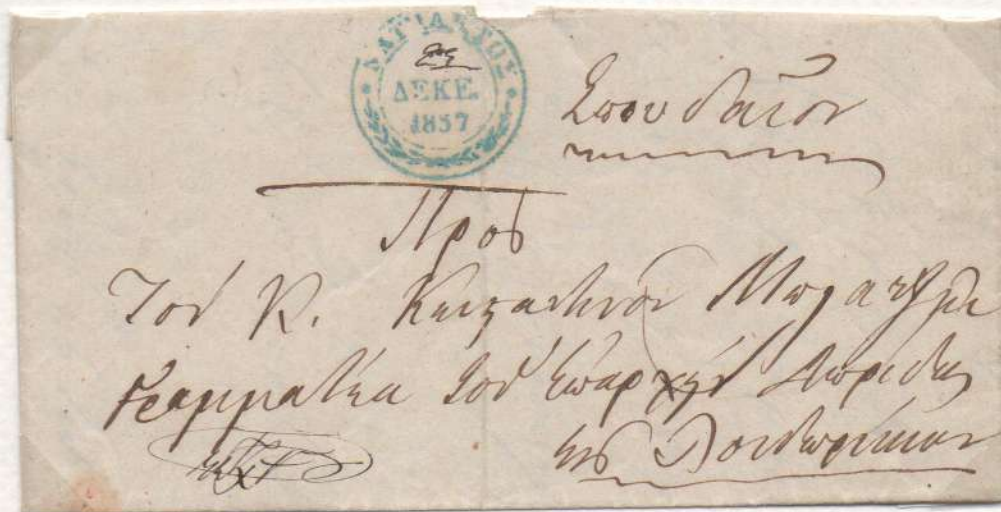 ΝΑΥΠΑΚΤΟΣ
ΔΕΚΕ.
1857
Σπουδαῖον
Πρὸς
Τὸν Κ. Κωνσταντῖνον
Γραμματέα τοῦ Ἐπαρχείου Δωρίδος
εἰς Λοιδωρίκιον